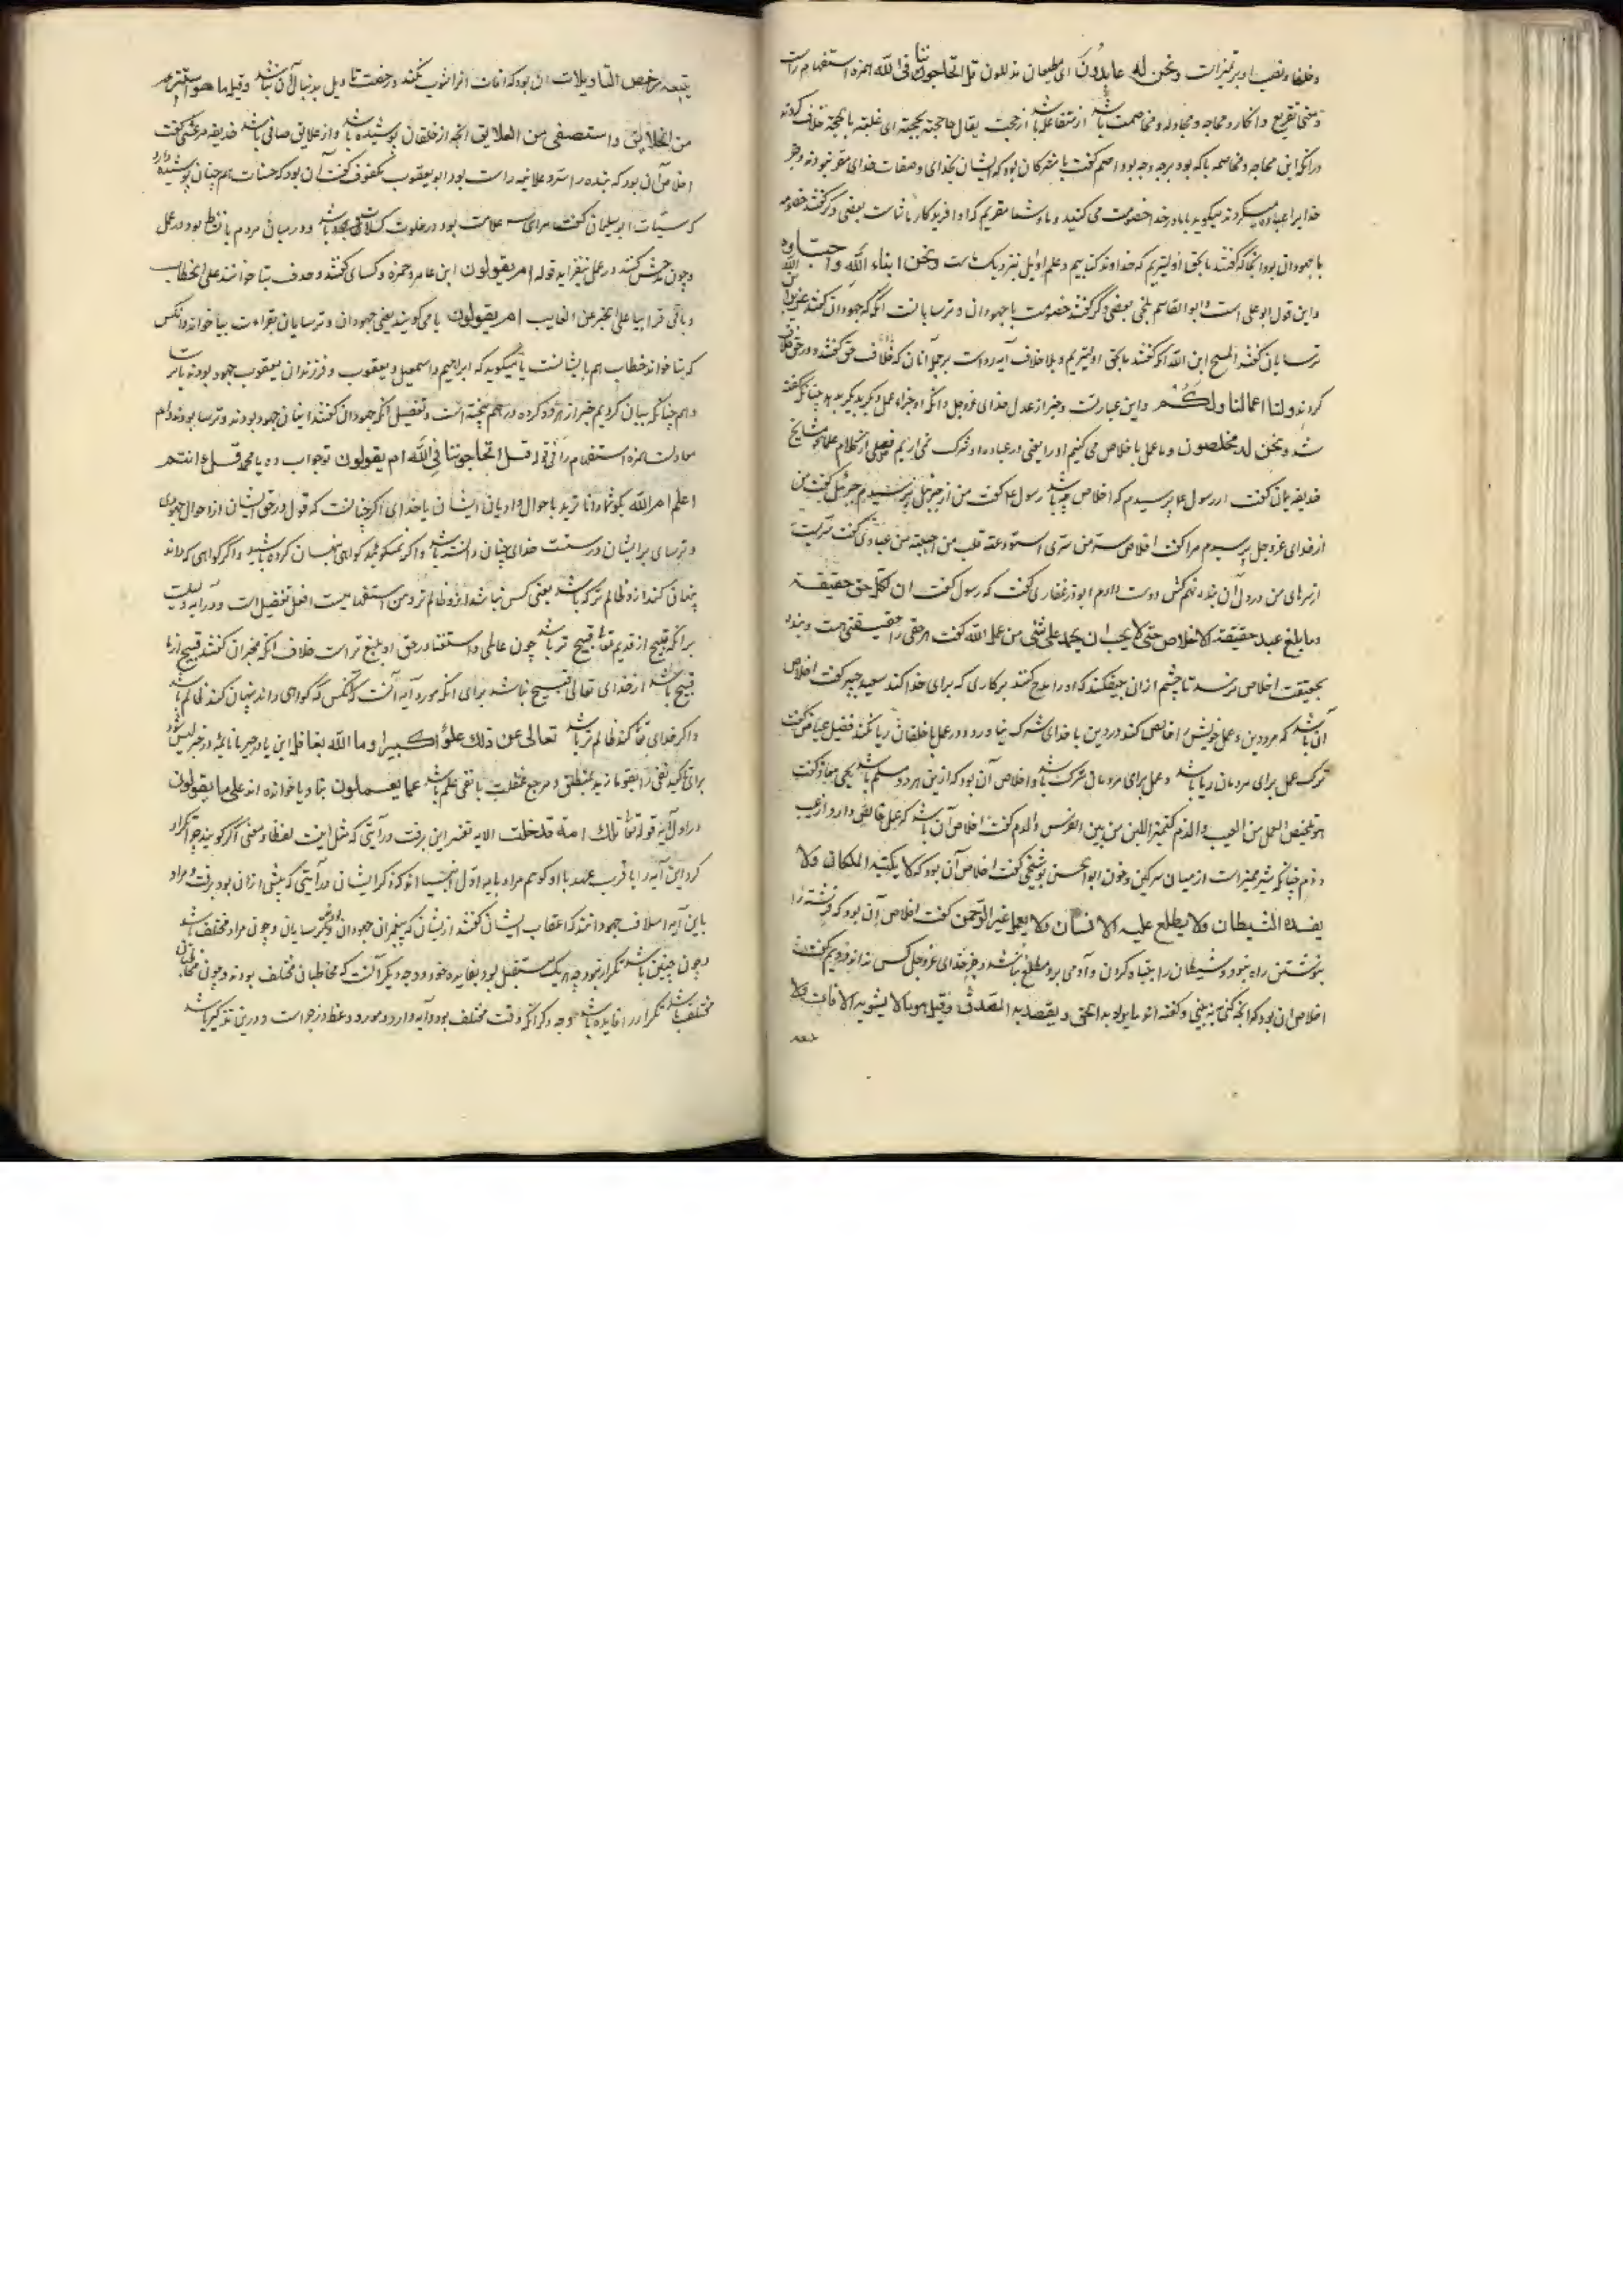 وخلفا ونصب او بر تمیز است ونحن له عابدون ای مطیعان متذللون قل اتحاجوننا فی الله همزه استفهام راست
ومعنی تقریع وانکار ومحاجه ومجادله ومخاصمت باشد از مفاعله باشد از حجت یقال حاججته بحجته ای غلبته بالحجة خلاف کردند
درانکه این محاجه ومخاصمه باکه بود برچه وجه بود اصم گفت با مشرکان بود که ایشان بخدای وصفات خدای مقر نبودند وجز
خدا را عبادت میکردند میگوید با ما در خدا خصومت می کنید وما وشما مقریم که او افریدکار ماست بعضی دگر گفتند خصومه
با جهودان بود انجا که گفتند ما بحق اولیتریم که خداوند کتابیم وعلم اوایل بنزدیک ماست ونحن ابناء الله واحباوه
واین قول ابو علی است وابو القاسم بلخی بعضی دگر گفتند خصومت با جهودان وترسایانست انکه که جهودان گفتند عزیر ابن الله
ترسایان گفتند المسیح ابن الله انکه گفتند ما بحق اولیتریم وبلا خلاف آیه رد است بر جمله آنان که خلاف حق گفتند ودر حق خلاف
کردند ولنا اعمالنا ولکم واین عبارتست وخبر از عدل خدای عزوجل وانکه او جزاء عمل دیکری بدیکری ندهد چنانکه گفته
شد ونحن له مخلصون وما عمل باخلاص می کنیم او را یعنی در عباده او شرک نمی اریم فصل از کلام علما ومشایخ
حذیفه یمان گفت از رسول ع پرسیدم که اخلاص چه باشد رسول ع گفت من از جبرئیل پرسیدم جبرئیل گفت من
از خدای عزوجل پرسیدم مرا گفت اخلاص سر من سری استودعته قلب من احببته من عبادی گفت سریست
از سرهای من در دل آن بنده نهم کش دوست دارم ابوذر غفاری گفت که رسول گفت ان لکل حق حقیقة
وما بلغ عبد حقیقة الاخلاص حتی لا یحب ان یحمد علی شئ من عمل الله گفت هر حقی را حقیقتی هست وبنده
بحقیقت اخلاص نرسد تا چشم ازان بیفکند که او را مدح کنند بر کاری که برای خدا کند سعید جبیر گفت اخلاص
آن باشد که مرد دین وعمل خویش را خالص کند در دین با خدای شرک نیاورد ودر عمل با خلقان ریا نکند فضیل عیاض گفت
ترک عمل برای مردمان ریا باشد وعمل برای مردمان شرک باشد واخلاص آن بود که ازین هر دو مسلم باشد یحیی معاذ گفت
هو تلخیص العمل من العیب والذم کتمییز اللبن من بین الفرث والدم گفت اخلاص آن باشد که عمل خالص دارد از عیب
وذم چنانکه شیر ممیز است از میان سرکین وخون ابو الحسن بوشنجی گفت اخلاص آن بود که لا یکتبه الملکان ولا
یفسده الشیطان ولا یطلع علیه الانسان ولا یعلمه غیر الرحمن گفت اخلاص آن بود که فرشته را
بنوشتن راه نبود وشیطان را بتباه کردن وآدمی برو مطلع نباشد وجز خدای عزوجل کس نداند رویم گفت
اخلاص آن بود که انچه کنی نه بینی وگفته اند ما یراد به الحق ویقصد به الصدق وقیل هو ما لا یشوبه الافات ولا
یتبعه رخص التاویلات ان بود که افات انرا شوب نکند ورخصت تاویل بدنبال آن نباشد وقیل ما هو استتر
من الخلایق واستصفی من العلایق انچه از خلقان پوشیده باشد واز علایق صافی باشد حذیفه مرعشی گفت
اخلاص آن بود که بنده را سر وعلانیه راست بود ابو یعقوب مکفوف گفت آن بود که حسنات هم چنان پوشیده دارد
که سیئات ابو سلیمان گفت مرائی سه علامت بود در خلوت کسلان باشد ودر میان مردم با نشاط بود ودر عمل
وچون مدحش کنند در عمل بیفزاید قوله ام یقولون ابن عامر وحمزه وکسای گفتند وحفص بتا خوانند علی الخطاب
وباقی قرا بیا علی الخبر عن الغایب ام یقولون یا می گویند یعنی جهودان وترسایان بقراءت بیا خواند وانکس
که بتا خواند خطاب هم با ایشانست یا میگوید که ابراهیم واسمعیل ویعقوب وفرزندان یعقوب جهود بودند یا ترسا
وهم چنانکه بیان کردیم خبر از هر دو کرده درهم پخته است وتفصیل انکه جهودان گفتند اینان جهود بودند وترسا بودند وام
معادلست همزه استفهام را فی قوله قل اتحاجوننا فی الله ام یقولون تو جواب ده یا محمد قل ءانتم
اعلم ام الله بکو شما دانا ترید باحوال وادیان ایشان یا خدای اگر چنانست که قول در حق ایشان از احوال جهودی
وترسای بر ایشان درست خدای چنان دانسته باشد واگر نمیگوئید گواهی پنهان کرده باشید واگر گواهی که داند
پنهان کند ازو ظالم تر که باشد یعنی کس نباشد ازو ظالم تر ومن استفهامیست افعل تفضیل است ودر آیه دلیلست
برانکه قبیح از قدیم تعالی قبیح تر باشد چون عالمی واستغنا در حق او بلیغ تر است خلاف انکه مجبران گفتند قبیح از ما
قبیح باشد از خدای تعالی قبیح نباشد برای انکه مورد آیه آنست که انکس که گواهی داند پنهان کند ظالم باشد
واگر خدای تعالی کند ظالم تر باشد تعالی عن ذلک علوا کبیرا وما الله بغافل این یا در خبر ما نافیه ودر خبر لیس شود
برای تاکید نفی را یقولون ما زید بمنطلق ومرجع غفلت با نفی علم باشد عما یعملون بتا ویا خوانده اند علی ما یقولون
در اول آیه قوله تعالی تلک امة قد خلت الایه تفسیر این برفت در آیتی که مثل اینست لفظا ومعنی اگر گویند چرا تکرار
کرد این آیه را با قرب عهد با او گوئیم مراد بایه اول انبیا اند که ذکر ایشان در آیتی که پیش ازان بود برفت ومراد
باین آیه اسلاف جهودانند که اعقاب ایشان گفتند ازیشان که پیغمبران جهودان ودگر ترسایان وچون مراد مختلف باشد
وچون چنین باشد تکرار نبود چه هر یک مستقل بود بفایده خود ووجه دیگر آنست که مخاطبان مختلف بودند وچون مخاطبان
مختلف باشند تکرار را فایده باشد وجه دگر انکه وقت مختلف بود وآیه وارد ومورد وعظ وزجر است ودرین تذکیر باشد